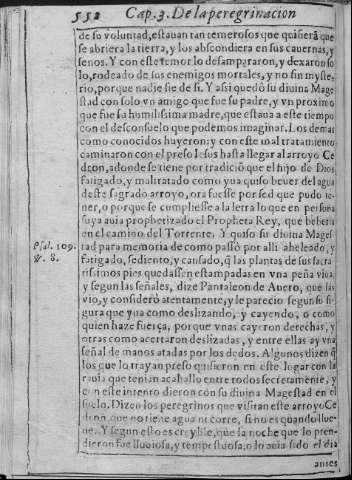 552 Cap. 3. De la peregrinacion
de so voluntad, estauan tan temerosos que quisierã que
se abriera la tierra, y los abscondiera en sus cauernas, y
senos. Y con este temor lo desampararon, y dexaron so
lo, rodeado de sus enemigos mortales, y no sin myste,
rio, porque nadie fie de si. Y assi quedò su diuina Mage
stad con solo vn amigo que fue su padre, y vn proximo
que fue su humilissima madre, que estaua a este tiempo
con el desconsuelo que podemos imaginar. Los demas
como conocidos huyeron: y con este mal tratamiento
caminaron con el preso Iesus hasta llegar al arroyo Ce
dron, adonde se tiene por tradiciõ que el hijo de Dios
fatigado, y maltratado como yua quiso beuer del agua
deste sagrado arroyo, ora fuesse por sed que pudo te-
ner, o porque se cumpliesse a la letra lo que en persona
suya auia prophetizado el Propheta Rey, que beberia
en el camino del Torrente. Y quiso su diuina Mages-
Psal. 109. tad para memoria de como passò por alli aheleado, y
℣. 8. fatigado, sediento, y cansado, q̃ las plantas de sus sacra
tissimos pies quedassen estampadas en vna peña viua,
y segun las señales, dize Pantaleon de Auero, que las
vio, y considerò atentamente, y le parecio segun su fi-
gura que yua como deslizando, y cayendo, o como
quien haze fuerça, porque vnas cayeron derechas, y
otras como acertaron deslizadas, y entre ellas ay vna
señal de manos atadas por los dedos. Algunos dizen q̃
los que lo trayan preso quisieron en este lugar con la
rauia que tenian acaballo entre todos secretamente, y
con este intento dieron con su diuina Magestad en el
suelo. Dizen los peregrinos que visitan este arroyo Ce
dron que no tiene agua ni corre, si no es quando llue-
ue. Y segun esto es creyble, que la noche que lo pren-
dieron fue lluuiosa, y tempestuosa, o lo auia sido el dia
antes